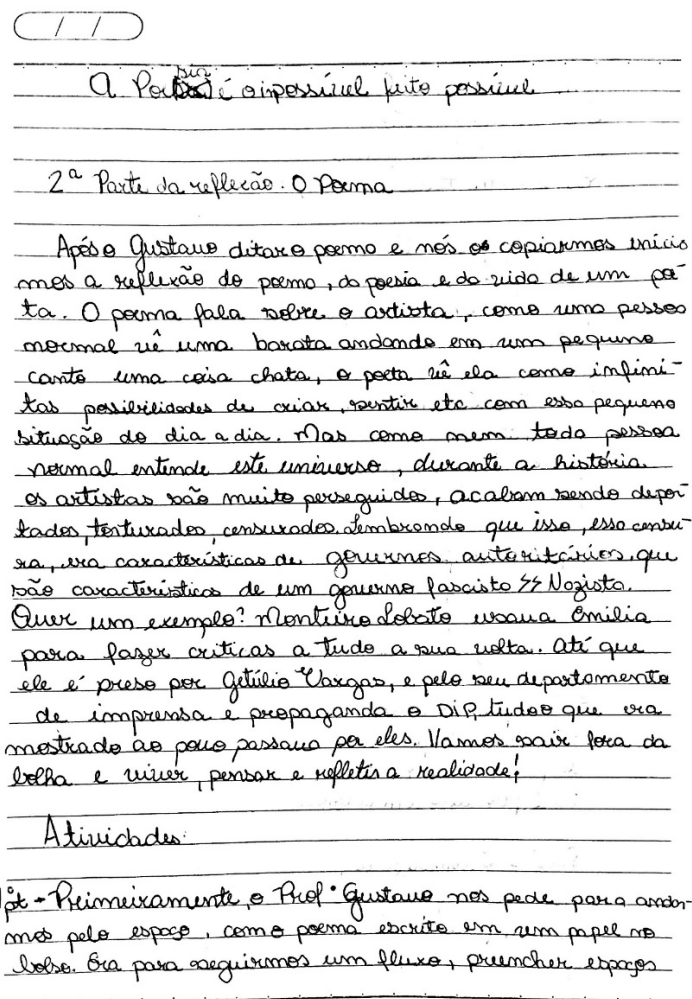 / /
A Poesia é o impossível feito possível
2ª Parte da reflexão. O Poema
Após o Gustavo ditar o poema e nós os copiarmos inicia
mos a reflexão do poema, da poesia e da vida de um poe-
ta. O poema fala sobre o artista, como uma pessoa
normal vê uma barata andando em um pequeno
canto uma coisa chata, o poeta vê ela como infini-
tas possibilidades de criar, sentir etc com essa pequena
situação do dia a dia. Mas como nem toda pessoa
normal entende este universo, durante a história
os artistas são muito perseguidos, acabam sendo depor-
tados, torturados, censurados. Lembrando que isso, essa censu-
ra, era características de governos autoritários, que
são características de um governo fascista SS Nazista.
Quer um exemplo? Monteiro Lobato usava Emilia
para fazer criticas a tudo a sua volta. Até que
ele é preso por Getúlio Vargas, e pelo seu departamento
de imprensa e propaganda o DIP, tudo o que era
mostrado ao povo passava por eles. Vamos sair fora da
bolha e viver, pensar e refletir a realidade!
Atividades:
1º pt - Preimeiramente, o Profº Gustavo nos pede para andar-
mos pelo espaço, com o poema escrito em um papel no
bolso. Era para seguirmos um fluxo, preencher espaços